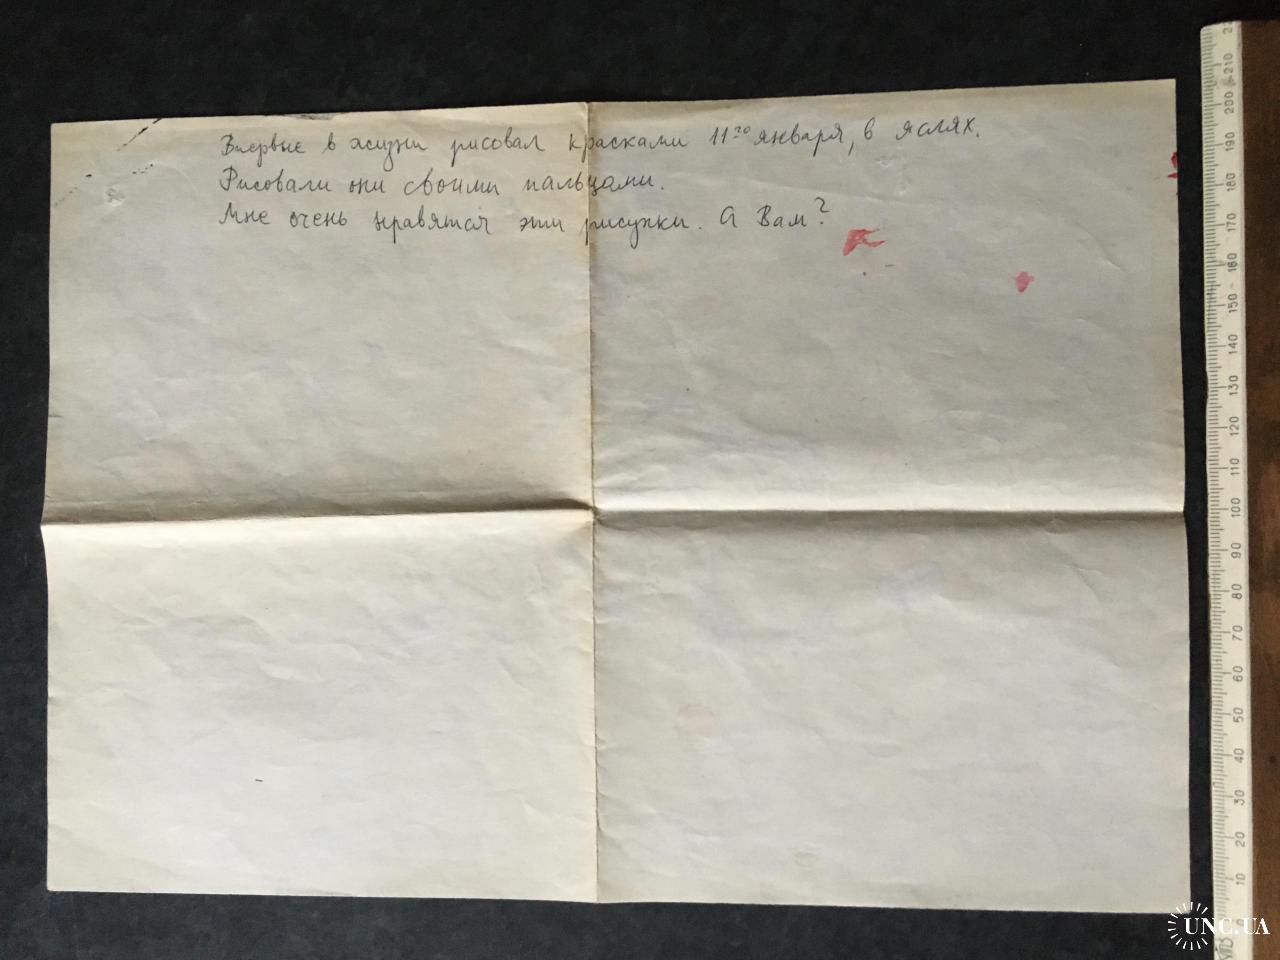 Впервые в жизни рисовал красками 11го января, в яслях.
Рисовали они своими пальцами.
Мне очень нравятся эти рисунки. А Вам?
210
200
190
180
170
160
150
140
130
120
110
100
90
80
70
60
50
40
30
20
10
0
UNC.UA